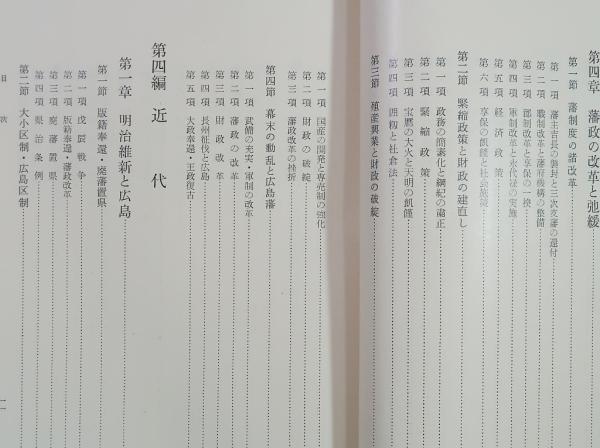 第四章 藩政の改革と弛緩
第一節 藩制度の諸改革
第一項 藩主吉長の襲封と三次支藩の還付
第二項 職制改革と藩府機構の整備
第三項 郡制改革と享保の一揆
第四項 軍制改革と永代禄の実施
第五項 経済政策
第六項 享保の飢饉と社会施策
第二節 緊縮政策と財政の建直し
第一項 政務の簡素化と綱紀の粛正
第二項 緊縮政策
第三項 宝暦の大火と天明の飢饉
第四項 囲籾と社倉法
第三節 殖産興業と財政の破綻
第一項 国産の開発と専売制の強化
第二項 財政の破綻
第三項 藩政改革の挫折
第四節 幕末の動乱と広島藩
第一項 武備の充実・軍制の改革
第二項 藩政の改革
第三項 財政改革
第四項 長州征伐と広島
第五項 大政奉還・王政復古
第四編 近代
第一章 明治維新と広島
第一節 版籍奉還・廃藩置県
第一項 戊辰戦争
第二項 版籍奉還・藩政改革
第三項 廃藩置県
第四項 県治条例
第二節 大小区制・広島区制
目次
一一